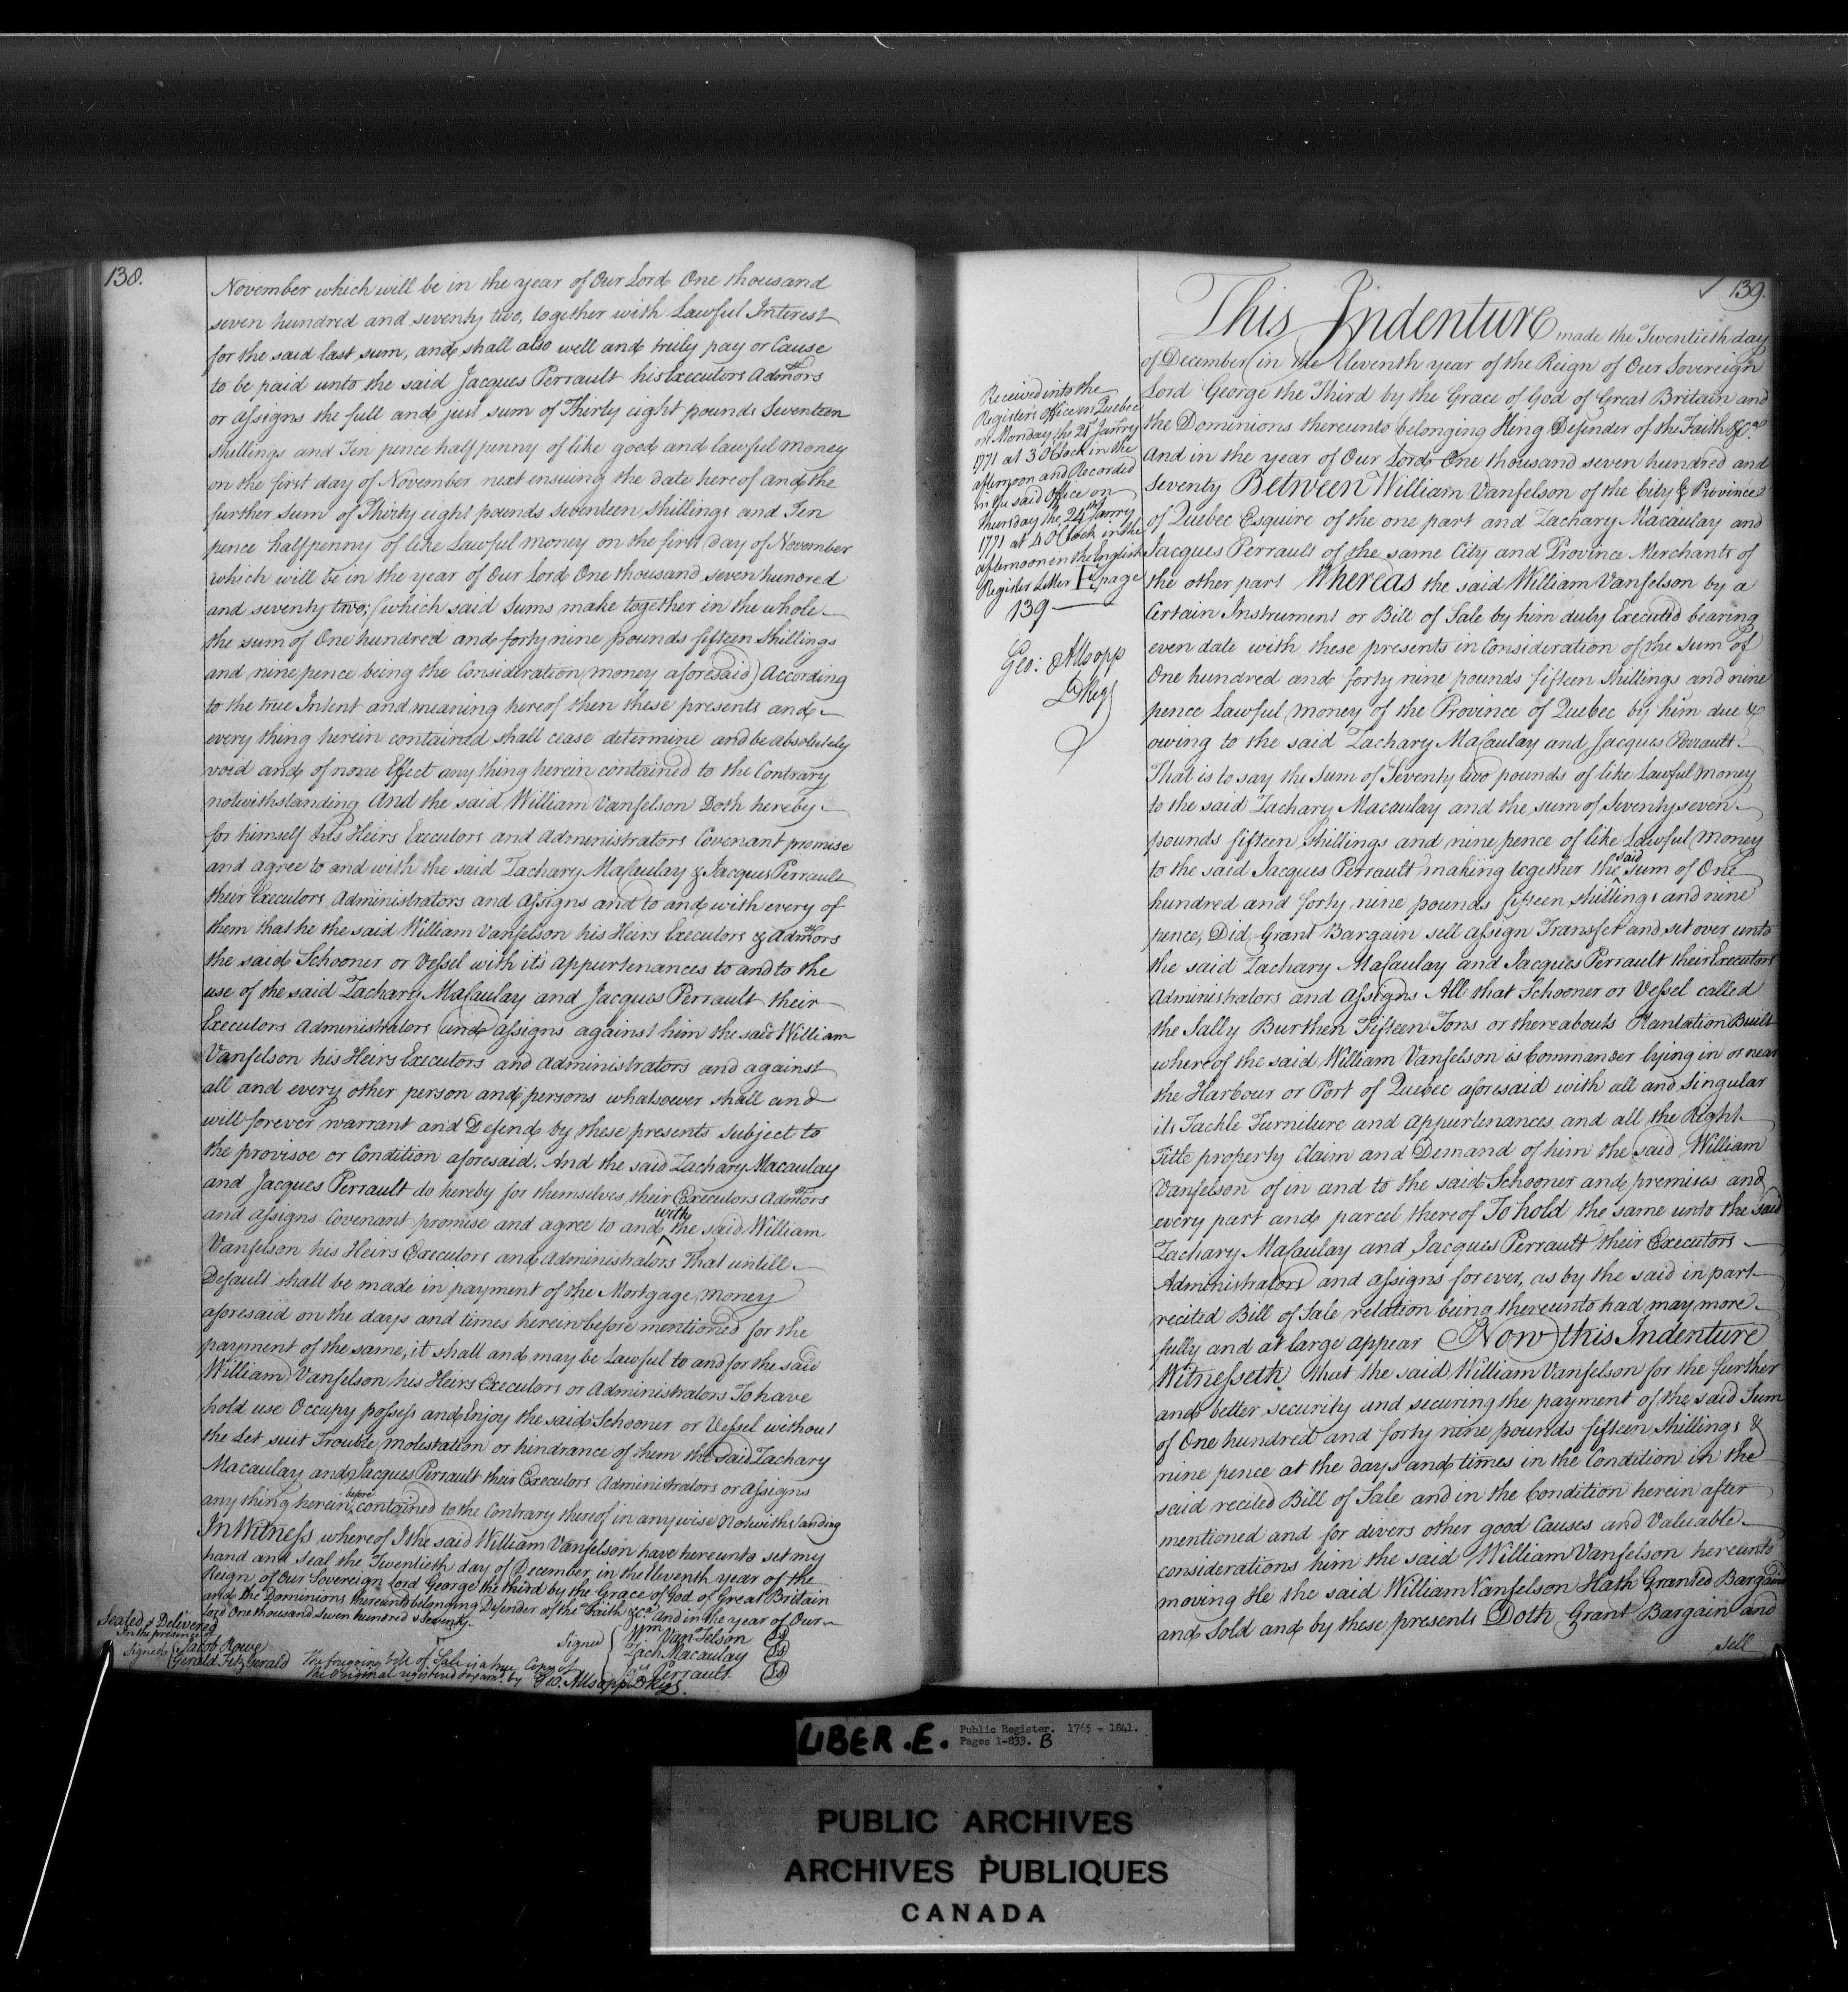 138.
November which will be in the year of Our Lord One thousand
seven hundred and seventy two, together with Lawful Interest
for the said last sum, and shall also well and truly pay or Cause
to be paid unto the said Jacques Perrault his Executors Admors
or assigns the full and just sum of Thirty eight pounds Seventeen
shillings and Ten pence half penny of like good and lawful money
on the first day of November next ensuing the date hereof and the
further sum of Thirty eight pounds seventeen shillings and Ten
pence halfpenny of like Lawful money on the first day of November
which will be in the year of Our Lord One thousand seven hundred
and seventy two; (which said sums make together in the whole
the sum of One hundred and forty nine pounds fifteen shillings
and nine pence being the Consideration money aforesaid) According
to the true Intent and meaning hereof then these presents and
every thing herein contained shall cease determine and be absolutely
void and of none Effect any thing herein contained to the Contrary
notwithstanding And the said William Vanfelson Doth hereby
for himself his Heirs Executors and administrators Covenant promise
and agree to and with the said Zachary Macaulay & Jacques Perrault
their Executors Administrators and assigns and to and with every of
them that he the said William Vanfelson his Heirs Executors & Admors
the said Schooner or Vessel with its appurtenances to and to the
use of the said Zachary Macaulay and Jacques Perrault their
Executors Administrators and assigns against him the said William
Vanfelson his Heirs Executors and administrators and against
all and every other person and persons whatsoever shall and
will forever warrant and Defend by these presents Subject to
the provisoe or Condition aforesaid. And the said Zachary Macaulay
and Jacques Perrault do hereby for themselves their Executors Admors
and assigns Covenant promise and agree to and with the said William
Vanfelson his Heirs Executors and Administrators That untill
Default shall be made in payment of the Mortgage money
aforesaid on the days and times herein before mentioned for the
payment of the same, it shall and may be Lawful to and for the said
William Vanfelson his Heirs Executors or Administrators To have
hold use Occupy possess and Enjoy the said Schooner or Vessel without
the Let suit Trouble molestation or hindrance of them the said Zachary
Macaulay and Jacques Perrault their Executors Administrators or assigns
any thing herein before contained to the Contrary thereof in any wise Notwithstanding
In Witness whereof I the said William Vanfelson have hereunto set my
hand and seal the Twentieth day of December in the Eleventh year of the
Reign of Our Sovereign Lord George the third by the Grace of God of Great Britain
and the Dominions thereunto belonging Defender of the Faith &ca. and in the year of Our
Lord One thousand Seven hundred & Seventy.
Sealed & Delivered
In the presence of
Signed Jacob Rowe
Gerald FitzGerald
Signed Wm Van Felson
Zach Macaulay
Jas Perrault
The foregoing bill of Sale is a true Copy of
the Original registered by Geo. Allsopp D Regr.
139.
Received into the
Register's Office in Quebec
on Monday the 21st Janry
1771 at 3 OClock in the
afternoon and Recorded
in the said Office on
Thursday the 24th Janry
1771 at 4 OClock in the
afternoon in the English
Register Letter E page
139
Geo: Allsopp
D Reg
This Indenture made the Twentieth day
of December in the Eleventh year of the Reign of Our Sovereign
Lord George the Third by the Grace of God of Great Britain and
the Dominions thereunto belonging King Defender of the Faith &ca.
And in the year of Our Lord One thousand seven hundred and
seventy Between William Vanfelson of the City & Province
of Quebec Esquire of the one part and Zachary Macaulay and
Jacques Perrault of the same City and Province Merchants of
the other part Whereas the said William Vanfelson by a
Certain Instrument or Bill of Sale by him duly Executed bearing
even date with these presents in Consideration of the Sum of
One hundred and forty nine pounds fifteen shillings and nine
pence Lawful money of the Province of Quebec by him due &
owing to the said Zachary Macaulay and Jacques Perrault
That is to say the Sum of Seventy two pounds of like Lawful money
to the said Zachary Macaulay and the sum of Seventy seven
pounds fifteen shillings and nine pence of like Lawful money
to the said Jacques Perrault making together the said Sum of One
hundred and forty nine pounds fifteen shillings and nine
pence, Did Grant Bargain sell assign Transfer and set over unto
the said Zachary Macaulay and Jacques Perrault their Executors
Administrators and Assigns All that Schooner or Vessel called
the Sally Burthen Fifteen Tons or thereabouts Plantation Built
whereof the said William Vanfelson is Commander lying in or near
the Harbour or Port of Quebec aforesaid with all and Singular
its Tackle Furniture and appurtenances and all the Right
Title property Claim and Demand of him the said William
Vanfelson of in and to the said Schooner and premises and
every part and parcel thereof To hold the same unto the said
Zachary Macaulay and Jacques Perrault their Executors
Administrators and assigns forever, as by the said in part
recited Bill of Sale relation being thereunto had may more
fully and at large appear Now this Indenture
Witnesseth that the said William Vanfelson for the further
and better security and securing the payment of the said Sum
of One hundred and forty nine pounds fifteen shillings &
nine pence at the days and times in the Condition in the
said recited Bill of Sale and in the Condition herein after
mentioned and for divers other good Causes and Valuable
considerations him the said William Vanfelson hereunto
moving He the said William Vanfelson Hath Granted Bargained
and Sold and by these presents Doth Grant Bargain and
sell
LIBER.E. Public Register. 1765 - 1841.
Pages 1-833. B
PUBLIC ARCHIVES
ARCHIVES PUBLIQUES
CANADA